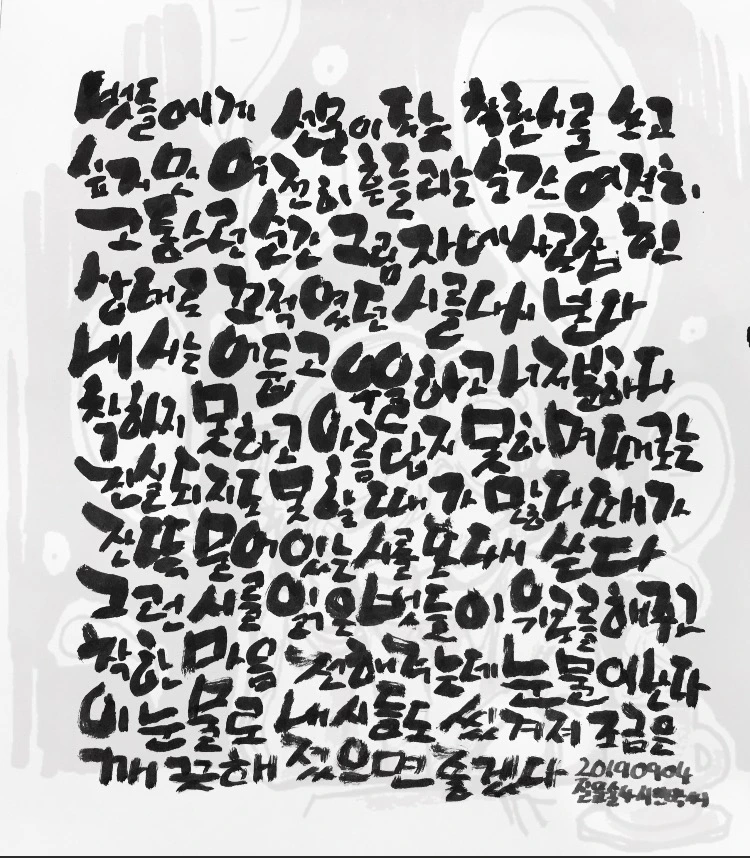 벗들에게 선물이 되는 착한 시를 쓰고
싶지만 여전히 흔들리는 순간 여전히
고통스런 순간 그림자에 사로잡힌
상태로 끄적였던 시를 다시 본다
내 시는 어둡고 우울하고 너저분하다
착하지 못하고 아름답지 못하며 때로는
진실되지도 못할 때가 많다 때가
잔뜩 묻어있는 시를 모다 쓴다
그런 시를 읽은 벗들이 위로를 해주고
착한 마음 전해주는데 눈물이 난다
이 눈물로 내 시들도 씻겨져 조금은
깨끗해졌으면 좋겠다 20190904